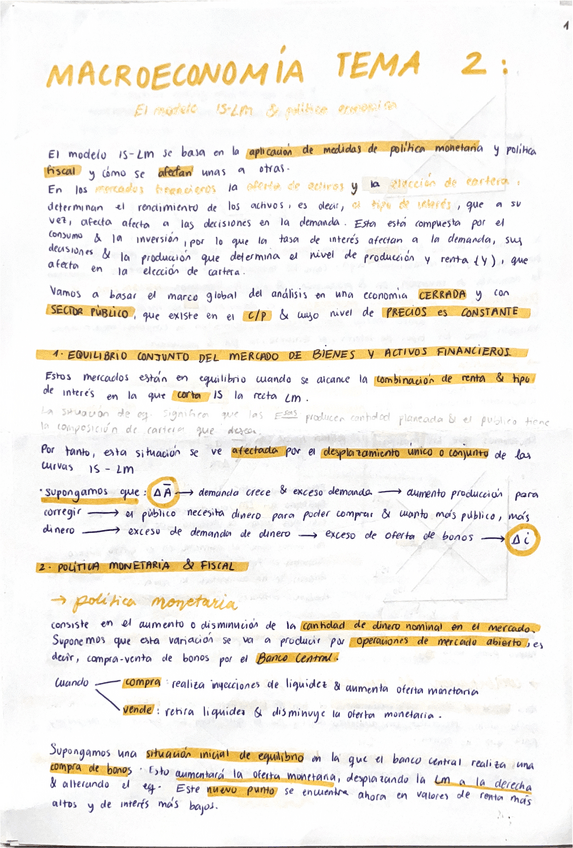 1
MACROECONOMÍA TEMA 2:
El modelo IS-LM & política económica
El modelo IS-LM se basa en la aplicación de medidas de política monetaria y política
fiscal y cómo se afectan unas a otras.
En los mercados financieros la oferta de activos y la elección de cartera,
determinan el rendimiento de los activos, es decir, el tipo de interés, que a su
vez, afecta afecta a las decisiones en la demanda. Esta está compuesta por el
consumo & la inversión, por lo que la tasa de interés afectan a la demanda, sus
decisiones & la producción que determina el nivel de producción y renta (Y), que
afecta en la elección de cartera.
Vamos a basar el marco global del análisis en una economía CERRADA y con
SECTOR PÚBLICO, que existe en el C/P & cuyo nivel de PRECIOS es CONSTANTE
1. EQUILIBRIO CONJUNTO DEL MERCADO DE BIENES Y ACTIVOS FINANCIEROS.
Estos mercados están en equilibrio cuando se alcance la combinación de renta & tipo
de interés en la que corta IS la recta LM.
La situación de eq. significa que las producen cantidad planeada & el público tiene
la composición de cartera que desea.
Por tanto, esta situación se ve afectada por el desplazamiento único o conjunto de las
curvas IS - LM
· Supongamos que: Δ Ā → demanda crece & exceso demanda → aumento producción para
corregir → el público necesita dinero para poder comprar & cuanto más público, más
dinero → exceso de demanda de dinero → exceso de oferta de bonos → Δ i
2. POLÍTICA MONETARIA & FISCAL
→ política monetaria
consiste en el aumento o disminución de la cantidad de dinero nominal en el mercado.
Suponemos que esta variación se va a producir por operaciones de mercado abierto, es
decir, compra-venta de bonos por el Banco Central.
Cuando compra: realiza inyecciones de liquidez & aumenta oferta monetaria
vende: retira liquidez & disminuye la oferta monetaria.
Supongamos una situación inicial de equilibrio en la que el banco central realiza una
compra de bonos. Esto aumentará la oferta monetaria, desplazando la LM a la derecha
& alterando el eq. Este nuevo punto se encuentra ahora en valores de renta más
altos y de interés más bajos.